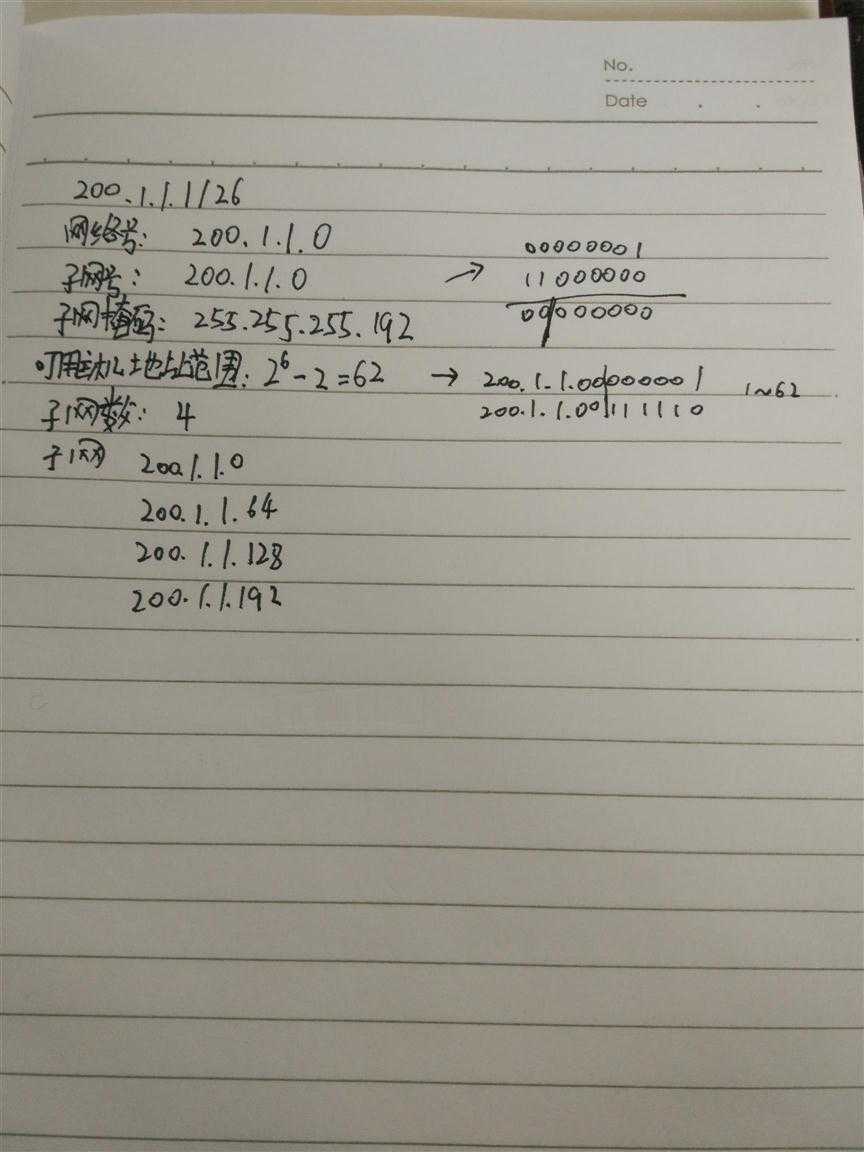 No.
Date
200.1.1.1/26
网络号: 200.1.1.0
00000001
子网号: 200.1.1.0 → 11000000
子网掩码: 255.255.255.192
00000000
可用主机地址范围: 2⁶-2=62 → 200.1.1.00|000001 1~62
200.1.1.00|111110
子网数: 4
子网 200.1.1.0
200.1.1.64
200.1.1.128
200.1.1.192